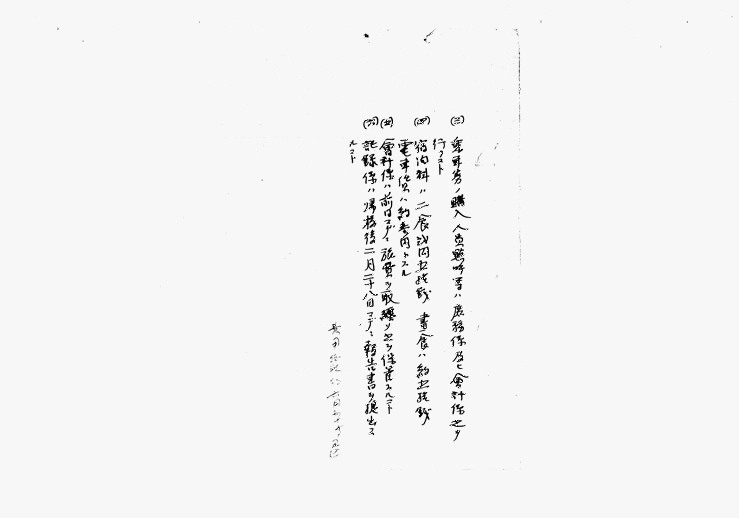 (三) 乗車券ノ購入人員點呼等ハ庶務係及ヒ會計係之ヲ
行フコト
(四) 宿泊料ハ二食弐円五拾銭 晝食ハ約五拾銭
電車賃ハ約参円トスル
(五) 會計係ハ前日マデニ旅費ヲ取纏メ之ヲ保管スルコト
(六) 記録係ハ帰校後二月二十八日マデニ報告書ヲ提出ス
ルコト